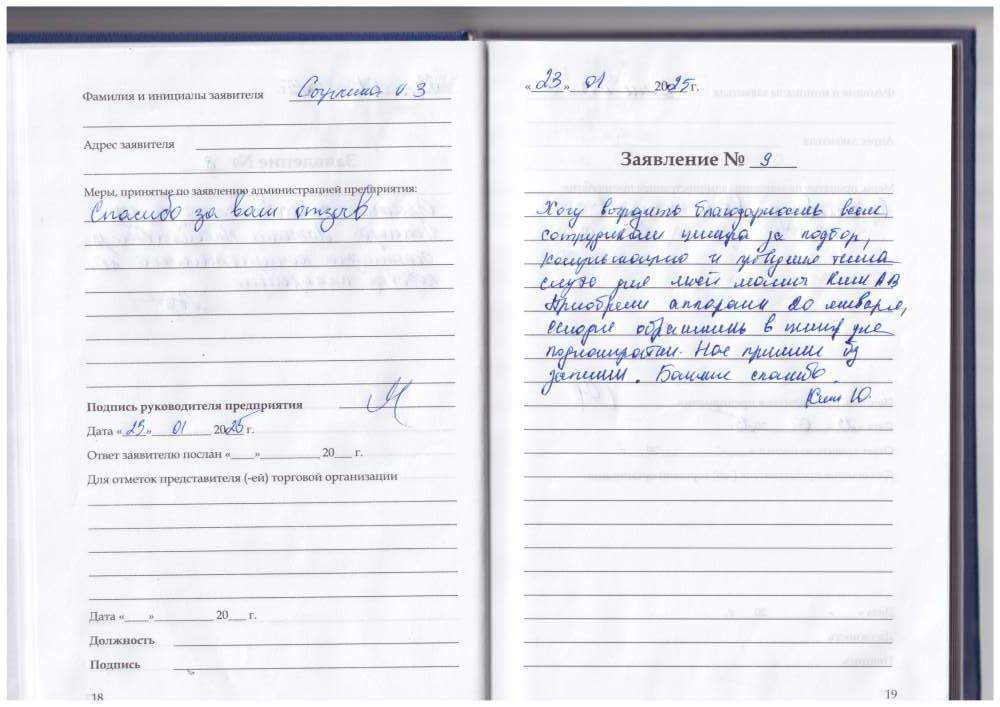 Фамилия и инициалы заявителя И.З
Адрес заявителя
Меры, принятые по заявлению администрацией предприятия:
Спасибо за ваш отзыв
Подпись руководителя предприятия
Дата «23» 01 2025 г.
Ответ заявителю послан «___» ________ 20___ г.
Для отметок представителя (-ей) торговой организации
Дата «____» ________ 20___ г.
Должность
Подпись
18
«23» 01 2025 г.
Заявление № 9
Хочу выразить благодарность всем
сотрудникам центра за подбор,
консультацию и
слуха для моей мамы Ким А В
Приобрели аппараты 20 января,
сегодня обратились в центр для
Нас приняли без
записи. Большое спасибо.
Ким Ю.
19